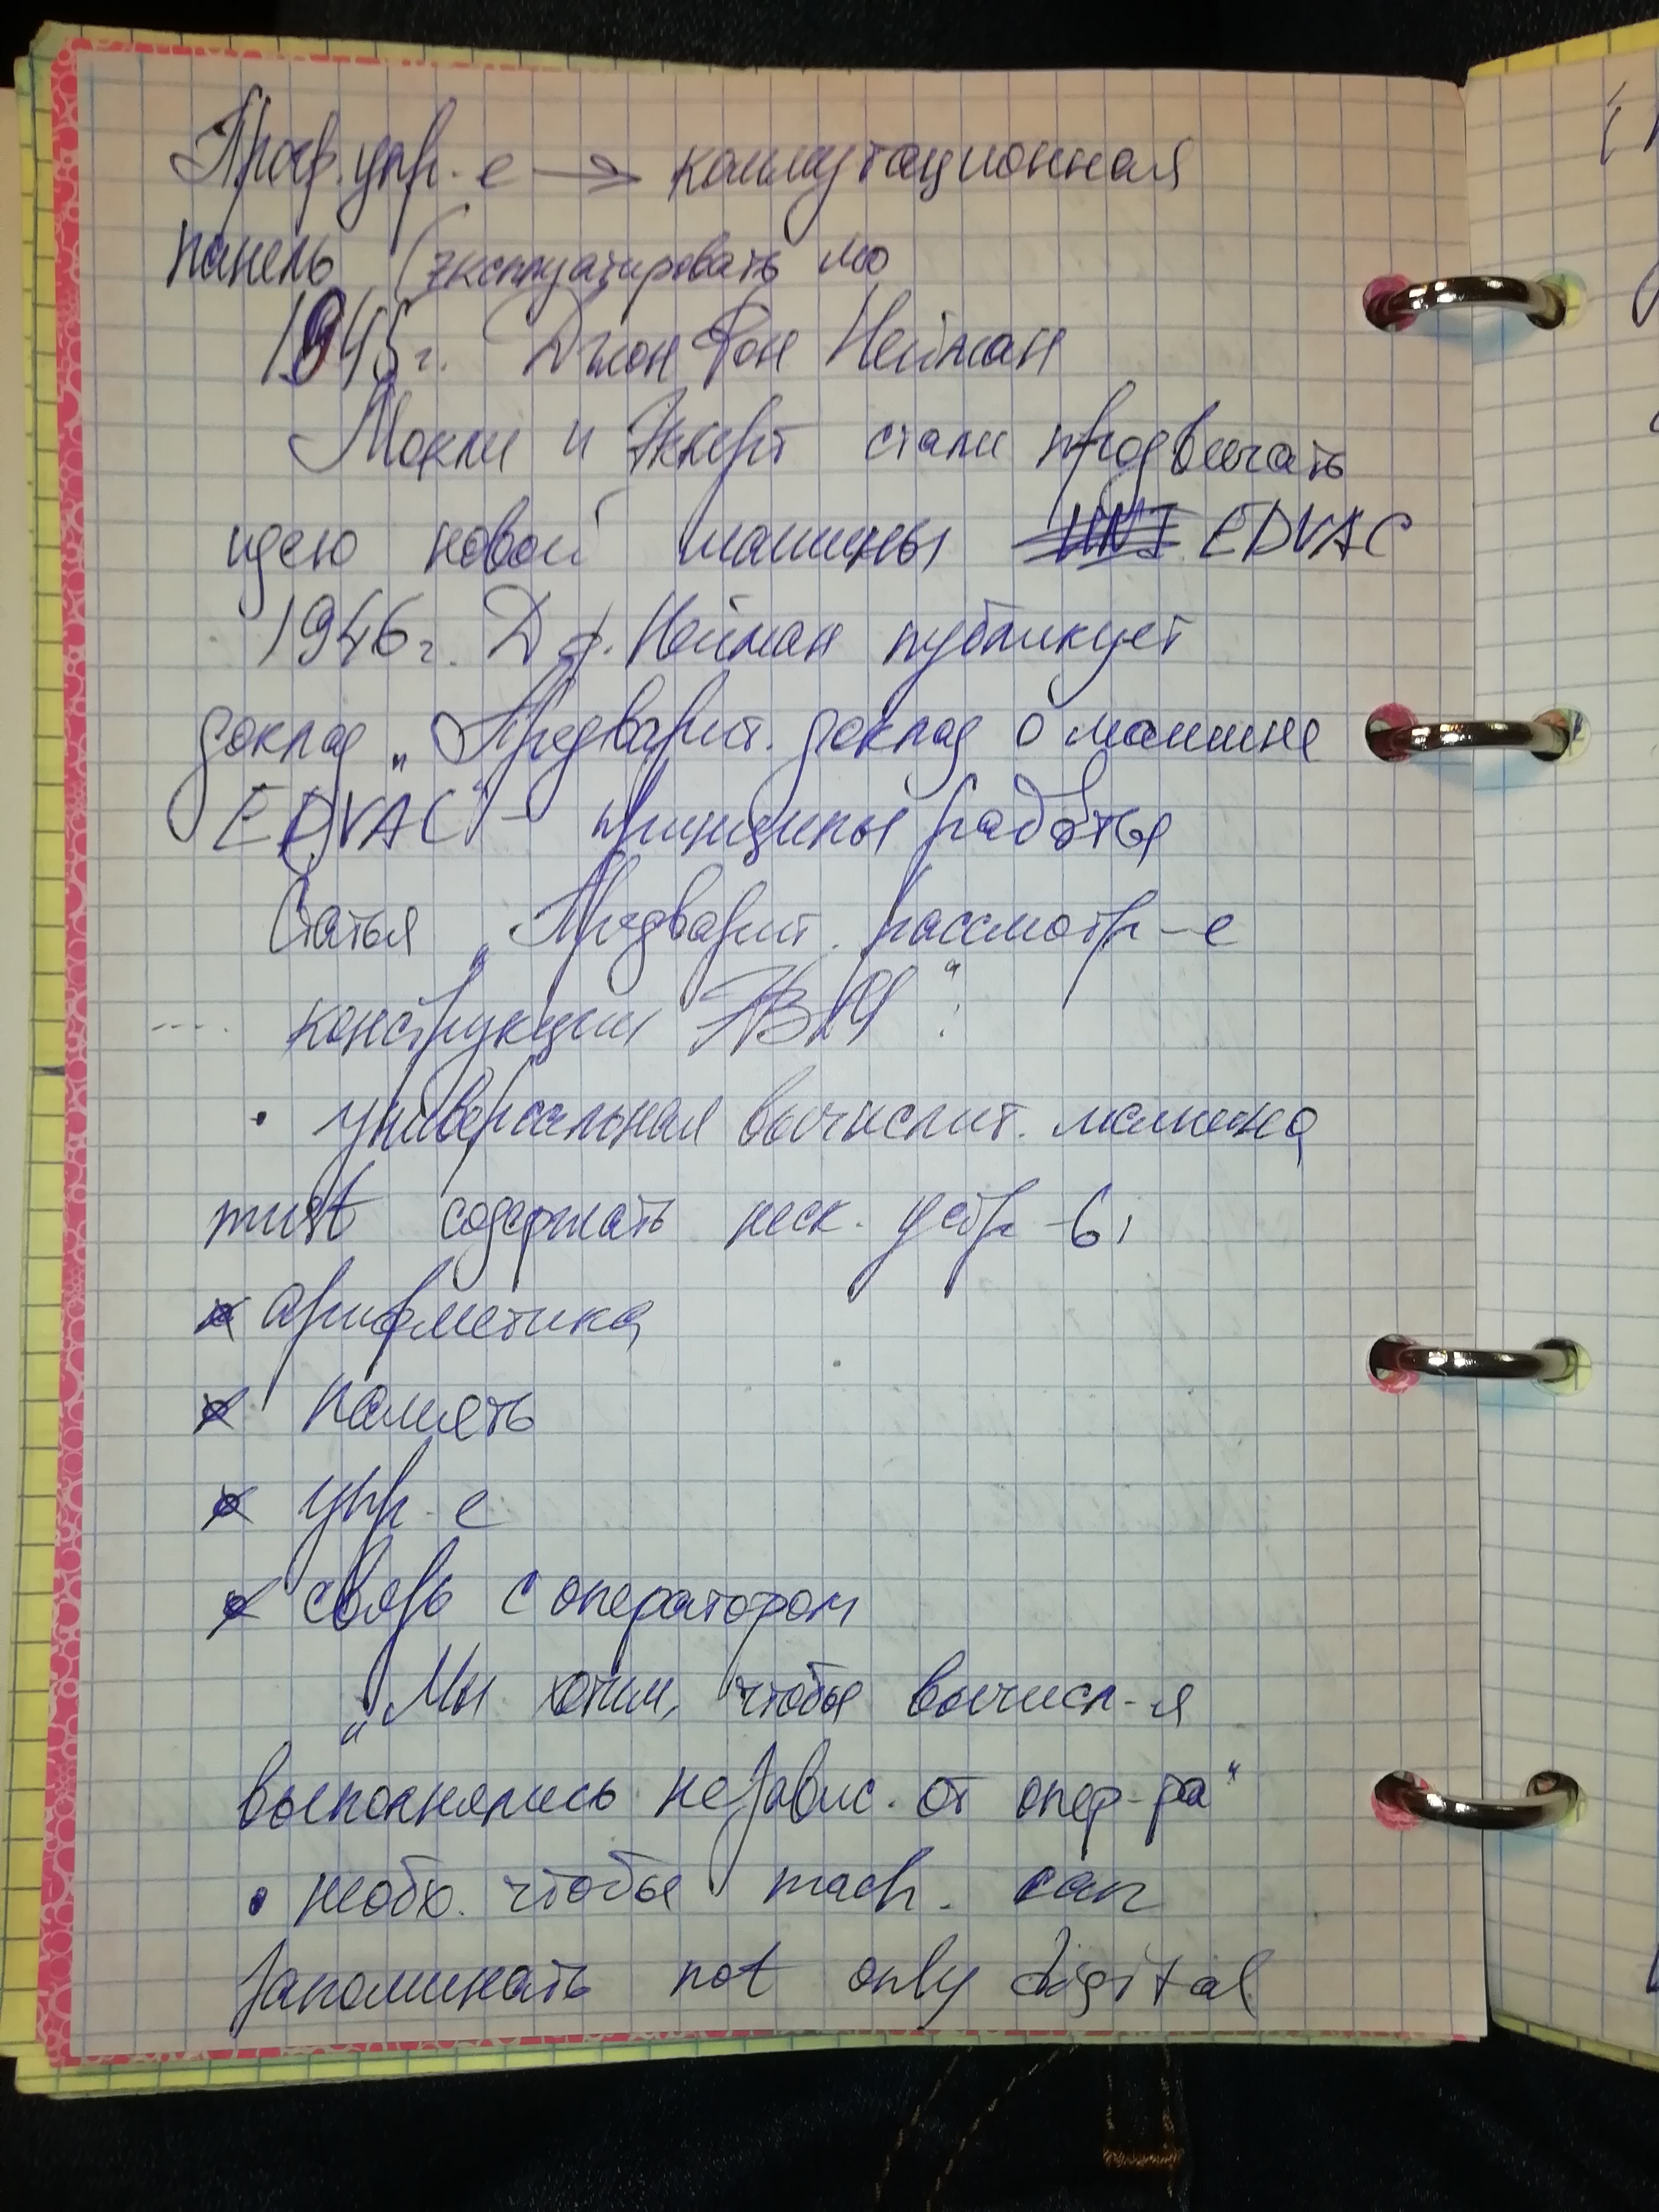 Прогр. упр-е → коммутационная
панель (эксплуатировать
1945г. Джон Фон Нейман
Мокли и Эккерт стали продвигать
идею новой машины EDVAC
1946г. Дж. Нейман публикует
доклад „Предварит. доклад о машине
EDVAC“ - принципы работы
Статья „Предварит. рассмотр-е
.... конструкции ЭВМ“:
• универсальная вычислит. машина
must содержать неск. устр-в:
арифметика
память
упр-е
связь с оператором
„Мы хотим, чтобы вычисл-я
выполнялись независ. от опер-ра“
• необх. чтобы mach. can
запоминать not only digital